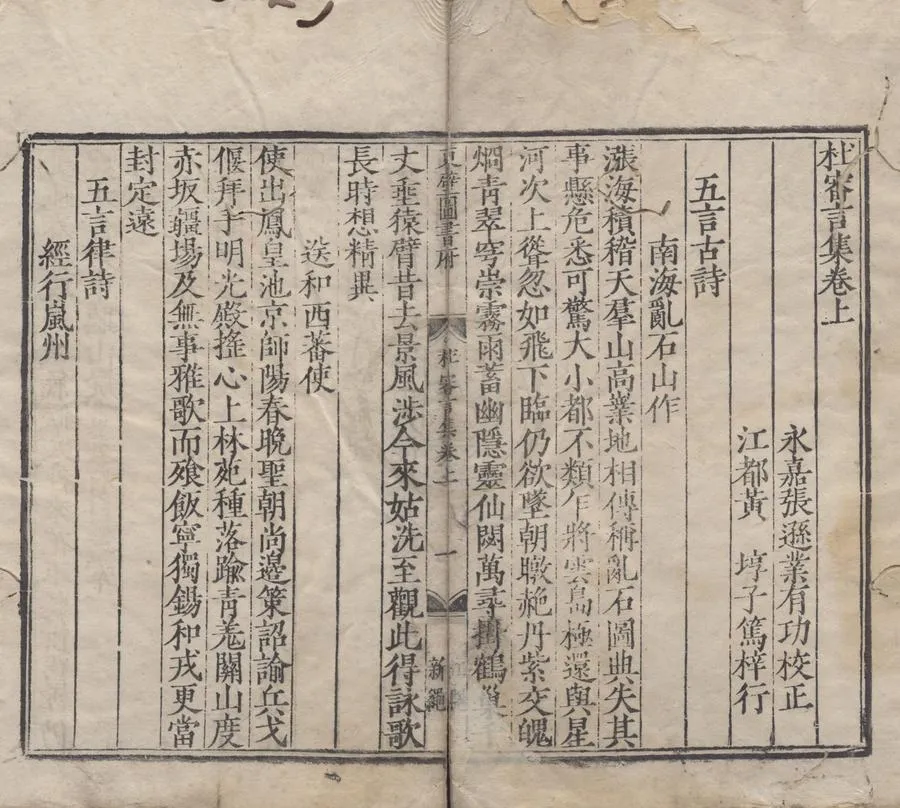 杜審言集卷上
永嘉張遜業有功校正
江都黃　埻子篤梓行
五言古詩
南海亂石山作
漲海積稽天羣山高業地相傳稱亂石圖典失其
事懸危悉可驚大小都不類乍將雲島極還與星
河次上聳忽如飛下臨仍欲墜朝暾赩丹紫夜魄
烱青翠穹崇霧雨蓄幽隱靈仙閟萬尋掛鶴巢千
東壁圖書府
杜審言集卷上
一
江郡
新繩
丈垂猿臂昔去景風涉今來姑洗至觀此得詠歌
長時想精異
送和西蕃使
使出鳳皇池京師陽春晚聖朝尚邊策詔諭兵戈
偃拜手明光殿搖心上林苑種落踰青羗關山度
赤坂疆埸及無事雅歌而飧飯寧獨錫和戎更當
封定遠
五言律詩
經行嵐州